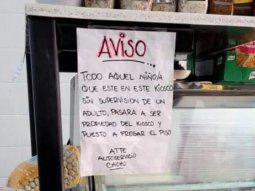 AVISO...
TODO AQUEL NIÑO/A
QUE ESTE EN ESTE KIOSCO
SIN SUPERVISION DE UN
ADULTO, PASARA A SER
PROPIEDAD DEL KIOSCO Y
PUESTO A FREGAR EL PISO
ATTE
AUTOSERVICIO
CACHO